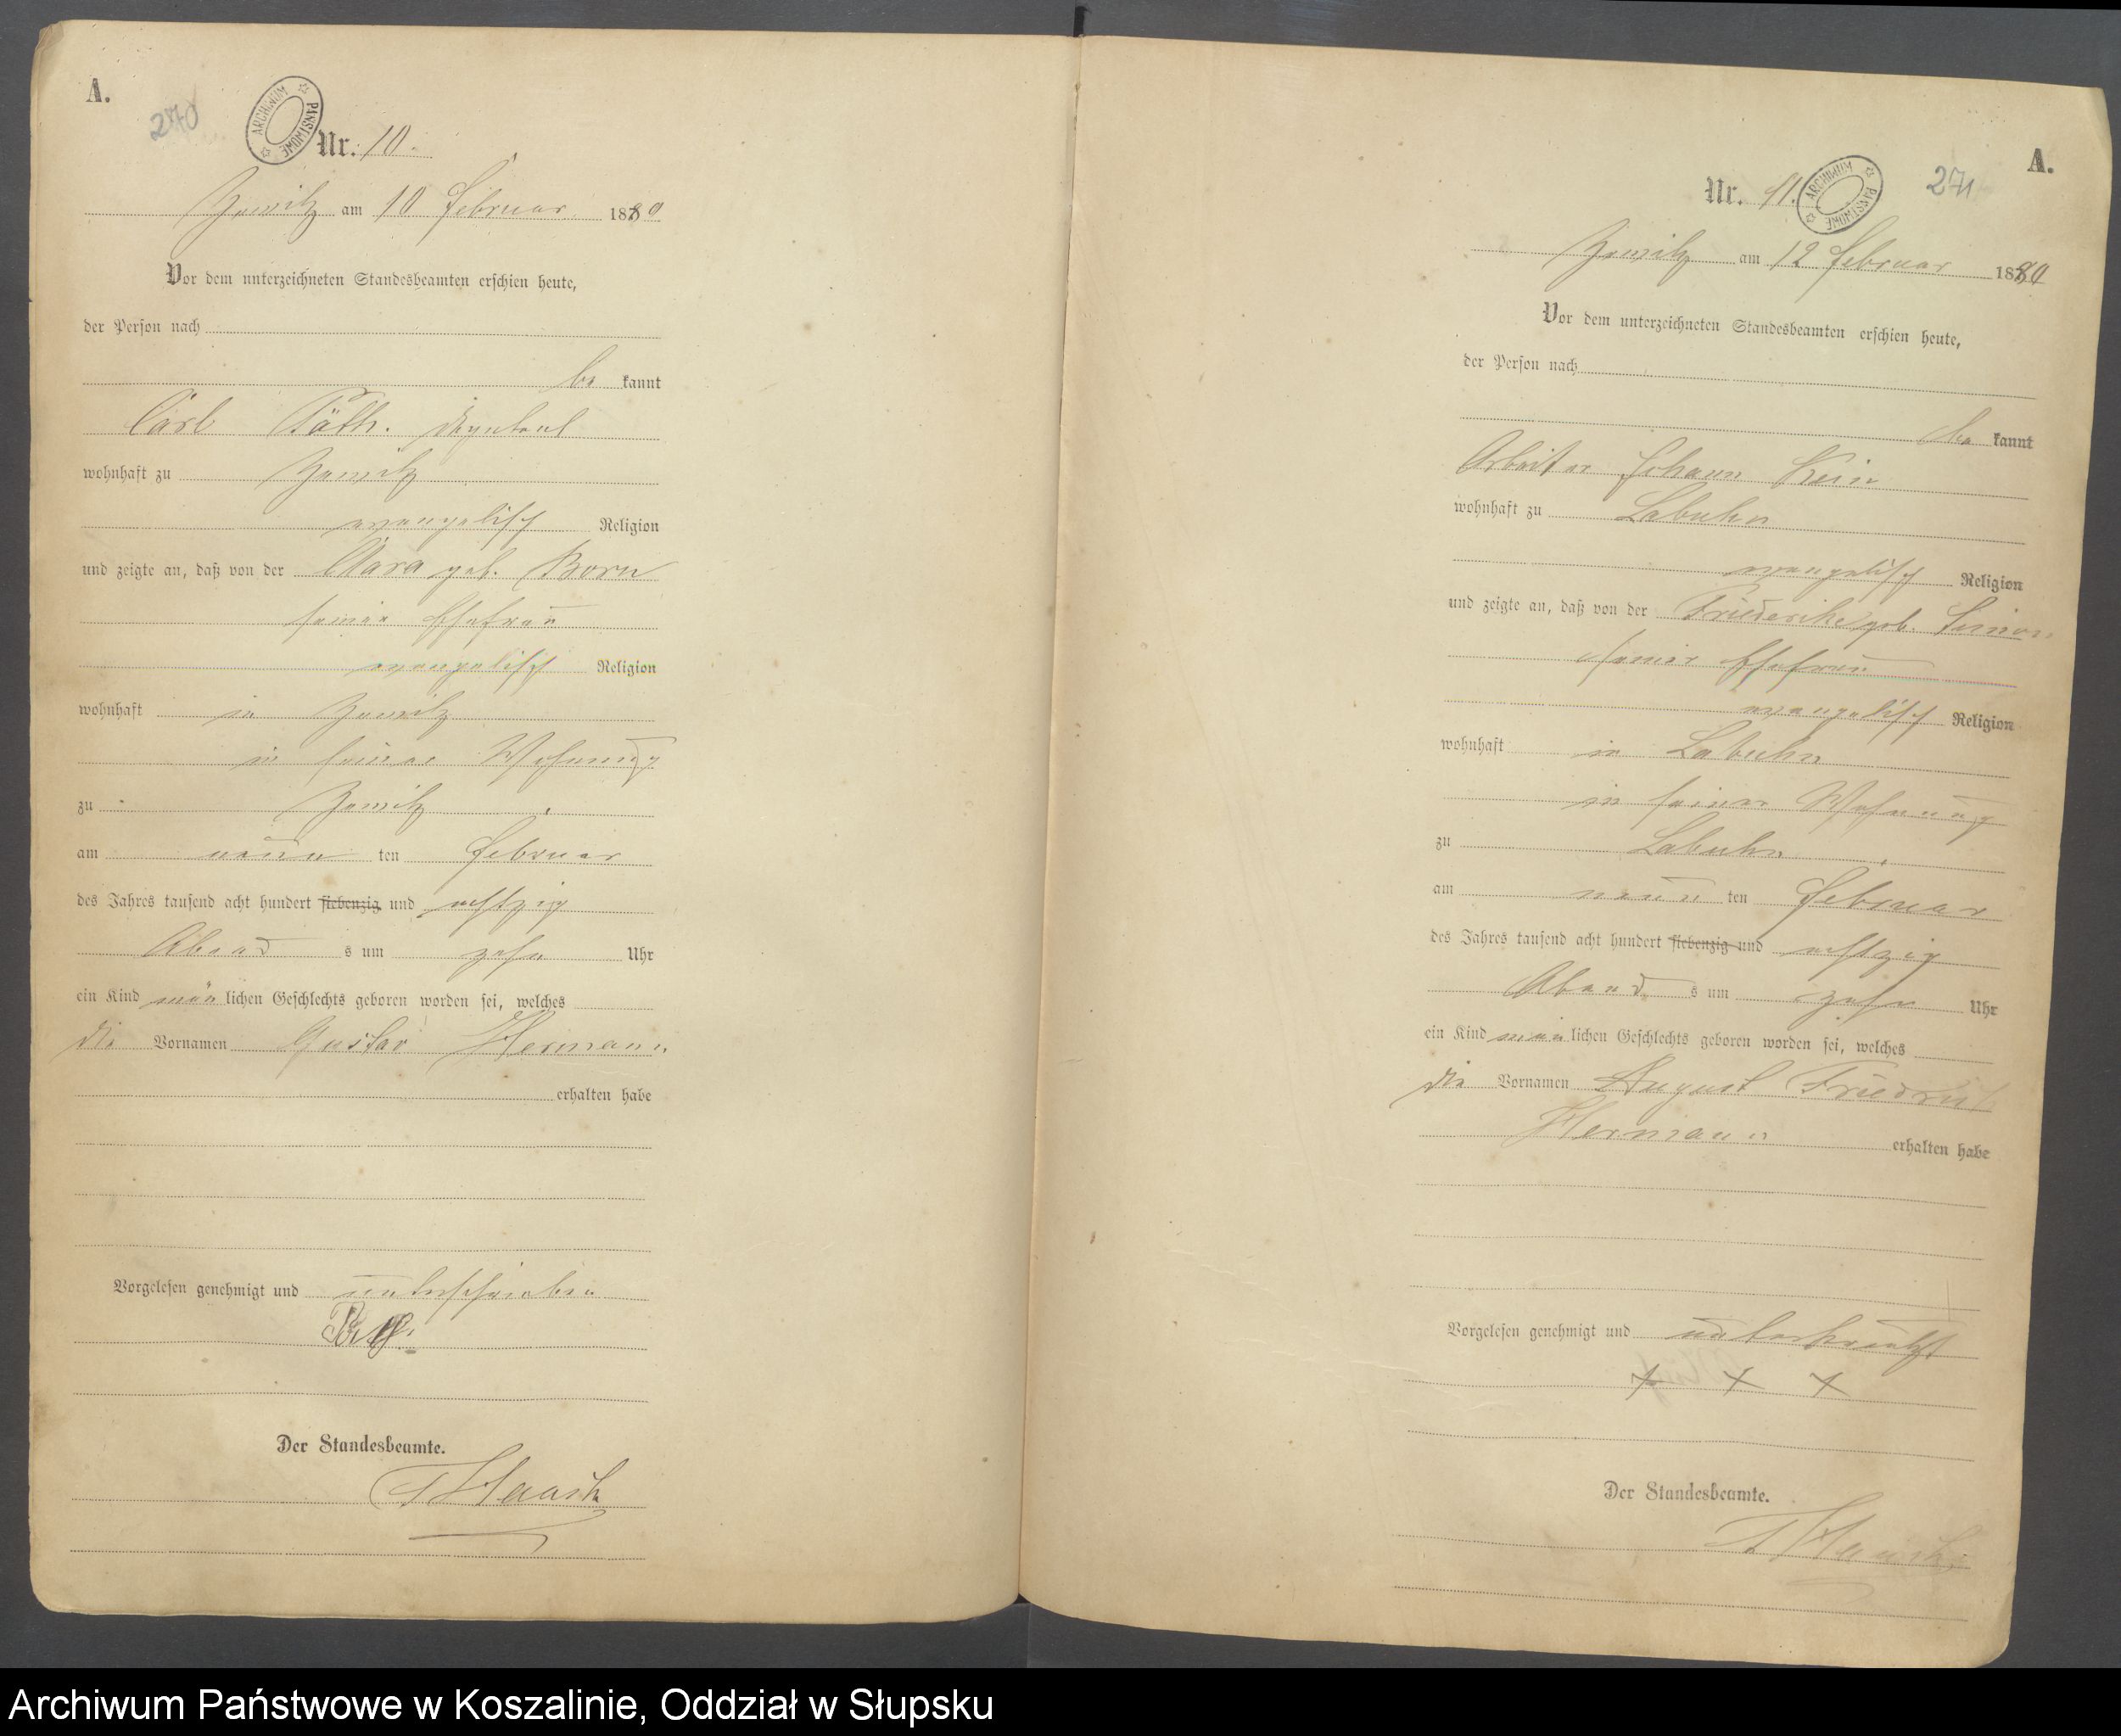 A.
270
ARCHIWUM PAŃSTWOWE
Nr. 10.
Zewitz am 10 Februar 1880
Vor dem unterzeichneten Standesbeamten erschien heute,
der Person nach
be kannt
Carl
wohnhaft zu Zewitz
evangelisch Religion
und zeigte an, daß von der Clara geb. Born
seiner Ehefrau
evangelisch Religion
wohnhaft in Zewitz
in seiner Wohnung
zu Zewitz
am neun ten Februar
des Jahres tausend acht hundert siebenzig und achtzig
Abend s um zehn Uhr
ein Kind män lichen Geschlechts geboren worden sei, welches
die Vornamen Gustav Hermann
erhalten habe
Vorgelesen genehmigt und unterschrieben
Der Standesbeamte.
A.
271
ARCHIWUM PAŃSTWOWE
Nr. 11.
Zewitz am 12 Februar 1880
Vor dem unterzeichneten Standesbeamten erschien heute,
der Person nach
be kannt
Arbeiter Johann
wohnhaft zu Labuhn
evangelisch Religion
und zeigte an, daß von der Friederike geb.
seiner Ehefrau
evangelisch Religion
wohnhaft in Labuhn
in seiner Wohnung
zu Labuhn
am neun ten Februar
des Jahres tausend acht hundert siebenzig und achtzig
Abend s um zehn Uhr
ein Kind män lichen Geschlechts geboren worden sei, welches
die Vornamen August Friedrich
Hermann erhalten habe
Vorgelesen genehmigt und unterkreuzt
+ + +
Der Standesbeamte.
Archiwum Państwowe w Koszalinie, Oddział w Słupsku